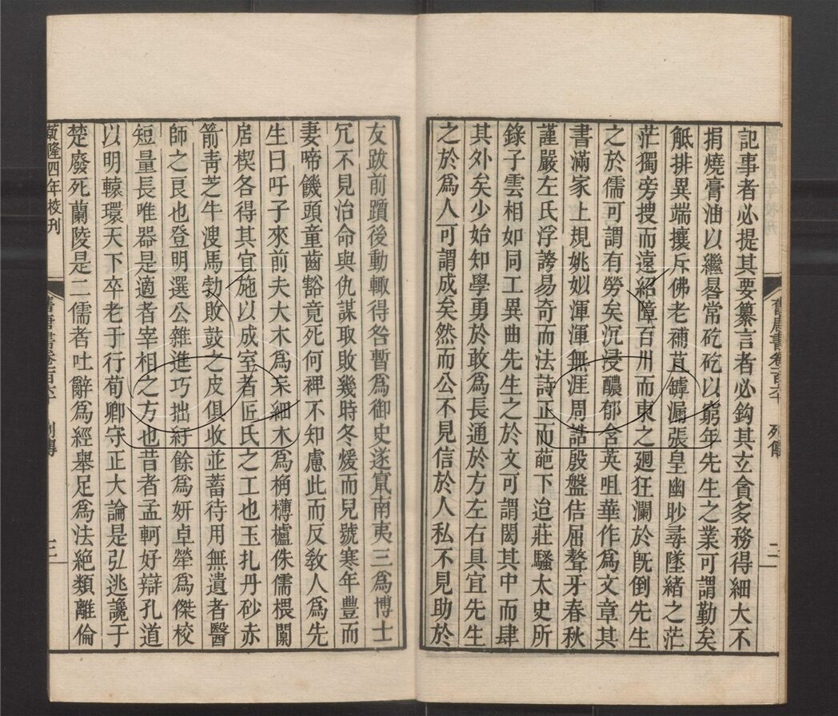 記事者必提其要纂言者必鈎其玄貪多務得細大不
捐燒膏油以繼晷常矻矻以窮年先生之業可謂勤矣
觝排異端攘斥佛老補苴罅漏張皇幽眇尋墜緒之茫
茫獨旁搜而遠紹障百川而東之廻狂瀾於旣倒先生
之於儒可謂有勞矣沉浸醲郁含英咀華作爲文章其
書滿家上規姚姒渾渾無涯周誥殷盤佶屈聱牙春秋
謹嚴左氏浮誇易奇而法詩正而葩下迨莊騷太史所
錄子雲相如同工異曲先生之於文可謂閎其中而肆
其外矣少始知學勇於敢爲長通於方左右具宜先生
之於爲人可謂成矣然而公不見信於人私不見助於
舊唐書卷一百六十 列傳 二
友跋前躓後動輒得咎暫爲御史遂竄南夷三爲博士
冗不見治命與仇謀取敗幾時冬煖而兒號寒年豐而
妻啼饑頭童齒豁竟死何裨不知慮此而反敎人爲先
生曰吁子來前夫大木爲杗細木爲桷欂櫨侏儒椳闑
扂楔各得其宜施以成室者匠氏之工也玉札丹砂赤
箭靑芝牛溲馬勃敗鼓之皮俱收並蓄待用無遺者醫
師之良也登明選公雜進巧拙紆餘爲妍卓犖爲傑校
短量長唯器是適者宰相之方也昔者孟軻好辯孔道
以明轍環天下卒老于行荀卿守正大論是弘逃讒于
楚廢死蘭陵是二儒者吐辭爲經舉足爲法絶類離倫
乾隆四年校刊 舊唐書卷一百六十 列傳 三